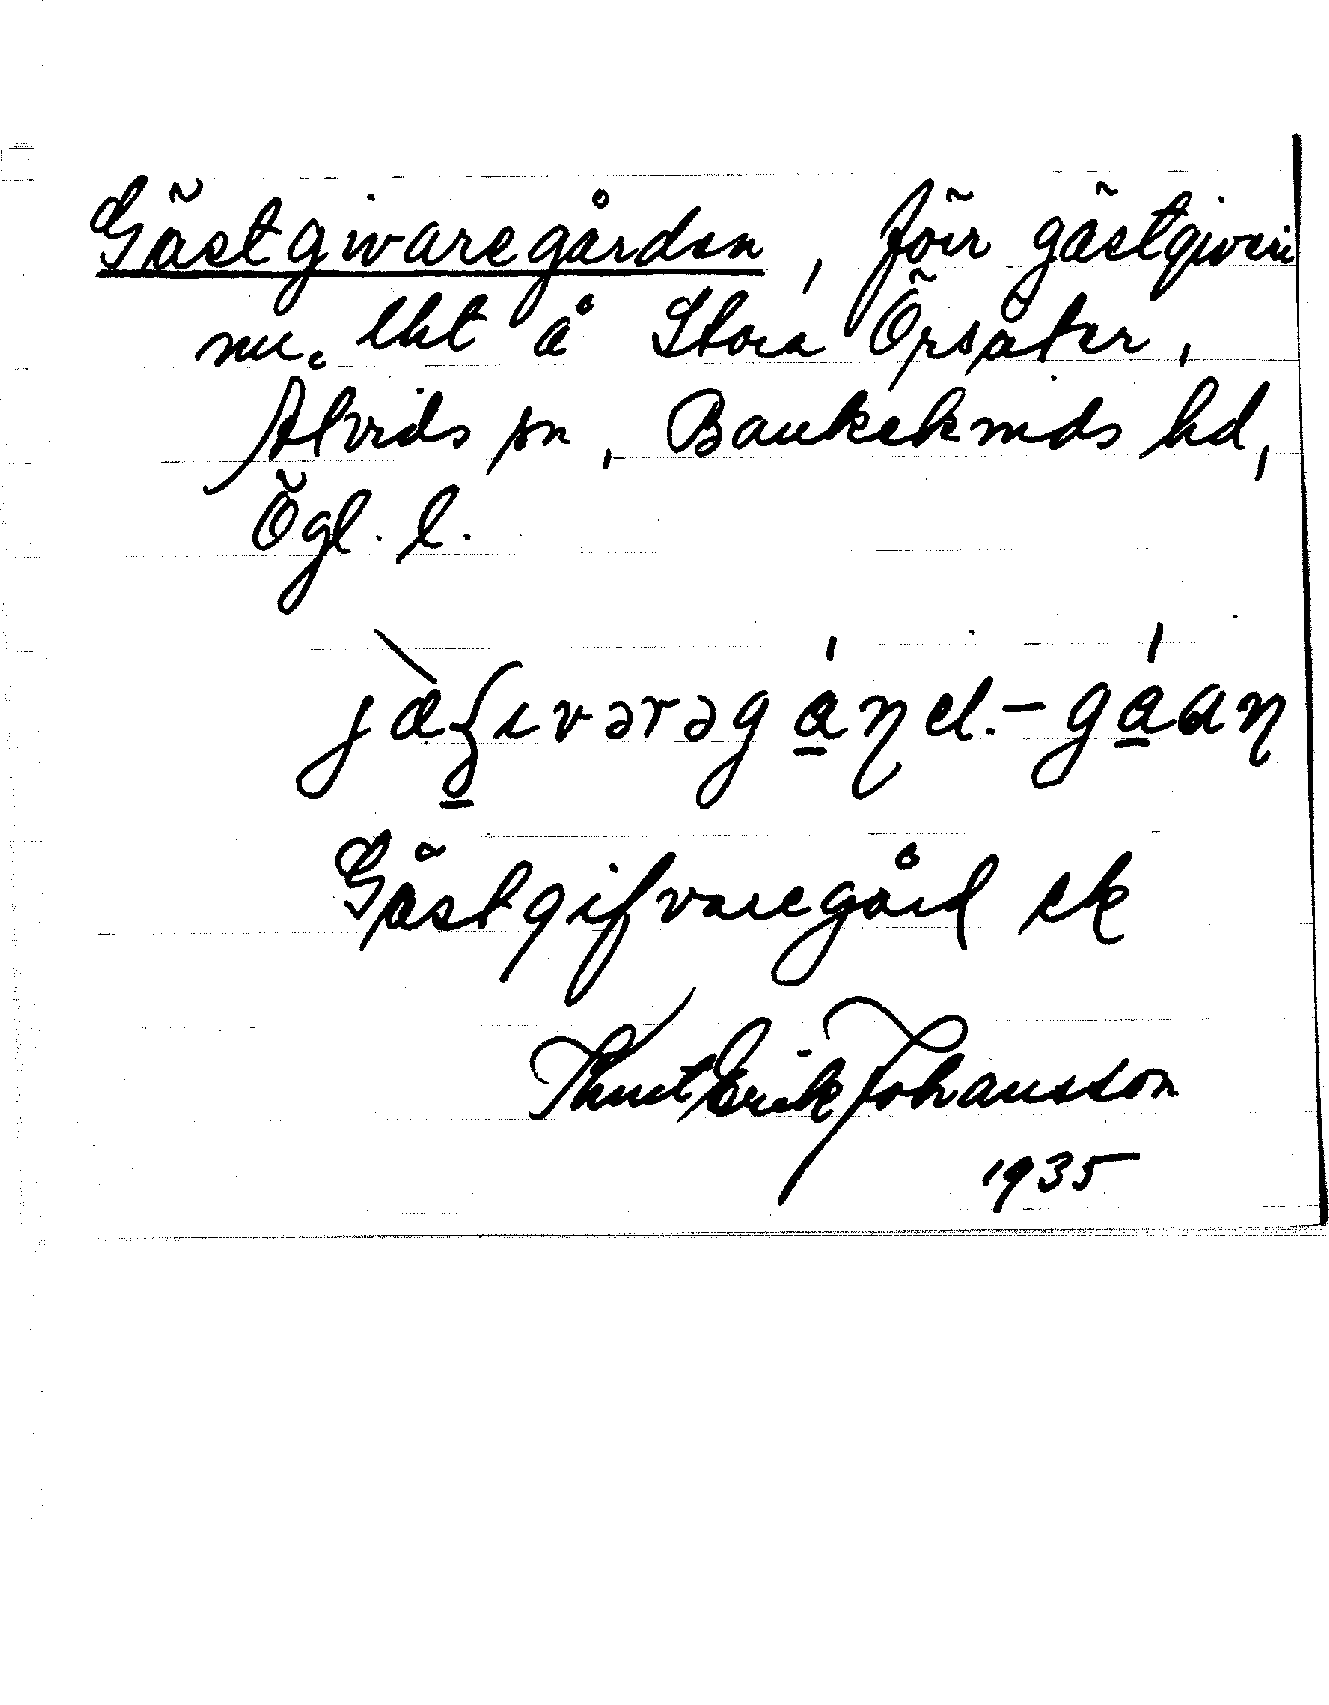 Gästgivaregården, förr gästgiveri
nu lht å Stora Örsätter,
Alvids sn, Bankekinds hd,
Ögl. l.
Gästgifvaregård ek
Knut Erik Johansson
1935